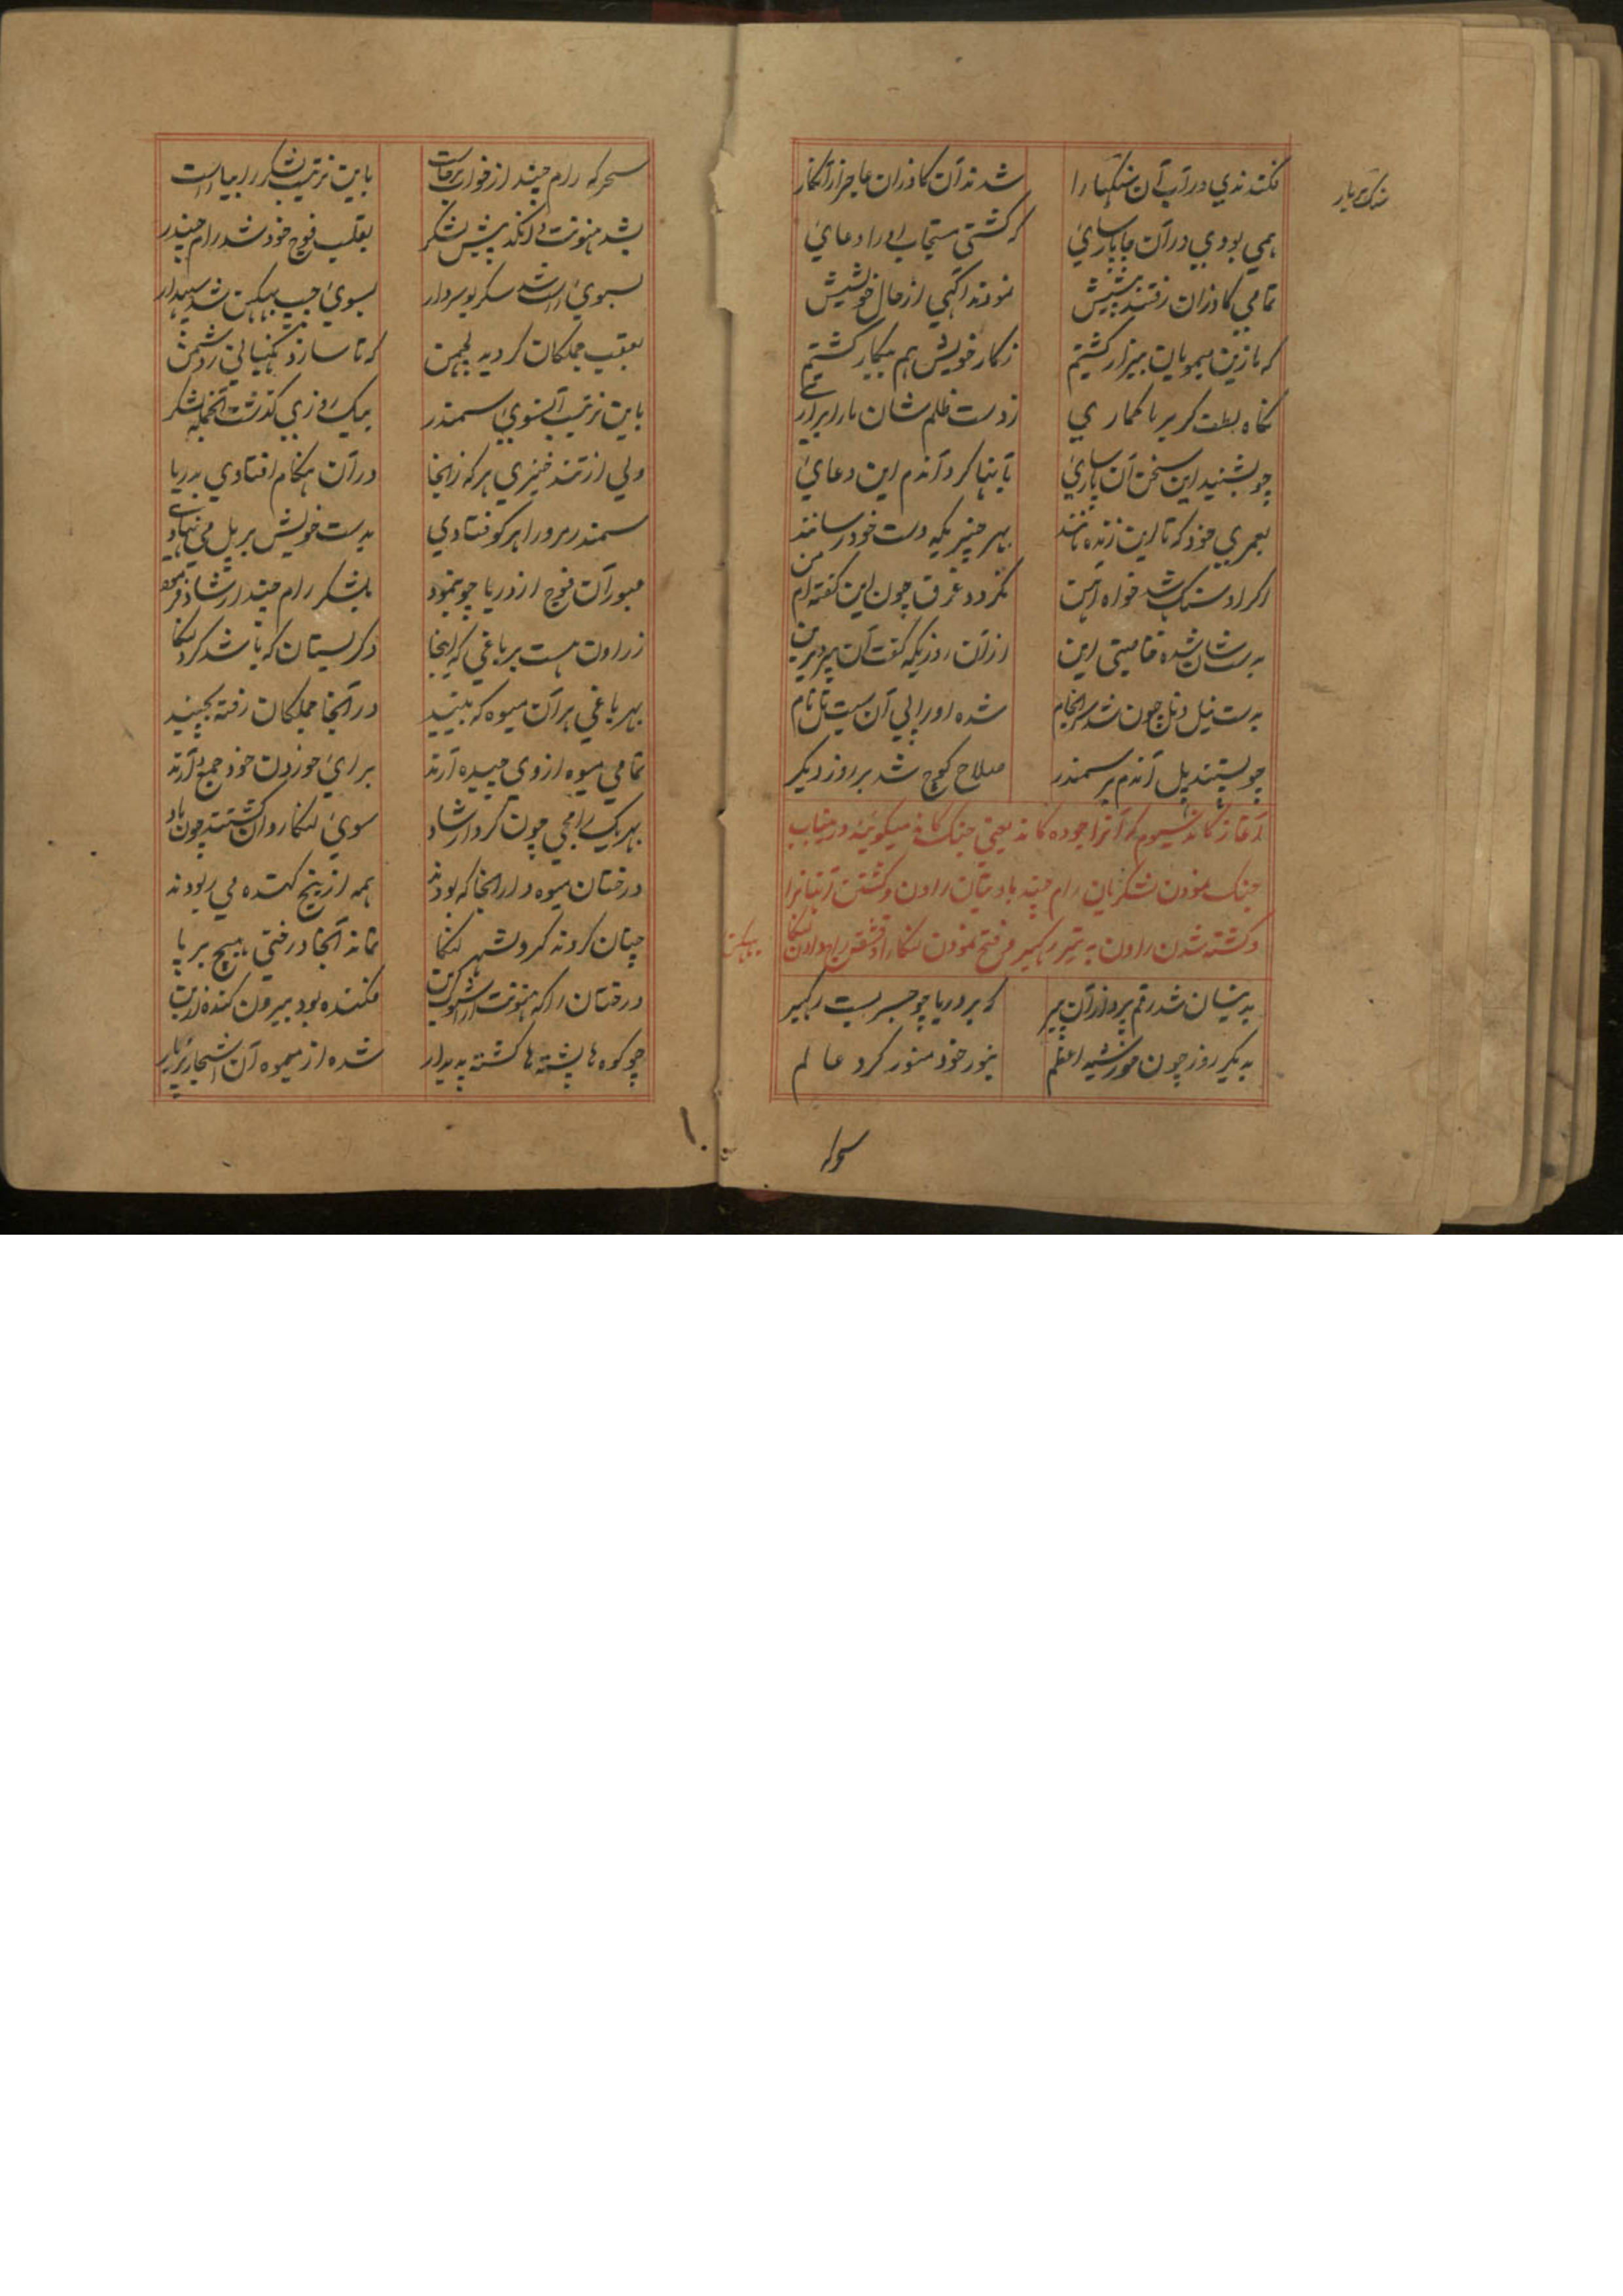 فکندندی در آب آن سنکها را شدند آن کاذران عاجز از آن کار
همی بودی در آن جا پارسایٔ که کشتی مستجاب او را دعایٔ
تمامی کاذران رفتند پیشش نمودند آکهی از حال خویشش
که ما زین میمونان بیزار کشتیم ز کار خویش هم بیکار کشتیم
نکاه لطف کر بر ما کماری ز دست ظلم شان ما را برآری
چو بشنید این سخن آن پارسایٔ بآنها کرد آندم این دعایٔ
بعمری خود که تا این زنده مانند بهر چیزیکه دست خود رسانند
اکر او سنک باشد خواه آهن نکردد غرق چون این کفته ام من
بدست شان شده خاصیتی این از آن روزیکه کفت آن پیر دیرین
بدست نیل و نل چون شد سرانجام شده او را پی آن سیت پل نام
چو بستند پل آندم بر سمندر صلاح کوچ شد بر روز دیکر
آغاز کاند ششیوم که آنرا جوده کاند یعنی جنک کاند میکویند در بیتاب
جنک نمودن لشکریان رام چند با دیتان راون و کشتن آنها را
و کشته شدن راون به تیر رکبیر و فتح نمودن لنکا
بدینسان شد رقم پرداز آن پیر که بر دریا چو جسر بست رکبیر
بدیکر روز چون خورشید اعظم بنور خود منور کرد عالم
سحر که رام چند از خواب برخاست باین ترتیب لشکر را بیاراست
بشد هنونت و انکد پیش لشکر بعقب فوج خود شد رام چندر
بسویٔ راست شد سکریو سردار بسویٔ چپ بهیکن شد سپهدار
بعقب جملکان کردید لچمن که تا سازد نکهبانی ز دشمن
باین ترتیب آنسویٔ سمندر بیک روزی کذشت آنجمله لشکر
ولی از تند خیزی هر که زانجا در آن هنکام افتادی بدریا
سمندر مر ورا هر کو فتادی بدست خویش بر پل می نهادی
عبور آن فوج از دریا چو بنمود بلشکر رام چند ارشاد فرمود
ز راون هست هر باغی که اینجا دکر بستان که باشد کرد لنکا
بهر باغی هر آن میوه که بینید در آنجا جملکان رفته بچینید
تمامی میوه از وی چیده آرند برایٔ خوردن خود جمع دارند
بهر یک رامجی چون کرد ارشاد سویٔ لنکا روان کشتند چون باد
درختان میوه دار آنجا که بودند همه از بیخ کنده می ربودند
چنان کردند کرد شهر لنکا نماند آنجا درختی هیچ بر پا
درختان را که هنونت فکنده بود بیرون کنده
چو کوه ها پشته ها کشته پدیدار شده از میوه آن اشجار پر بار